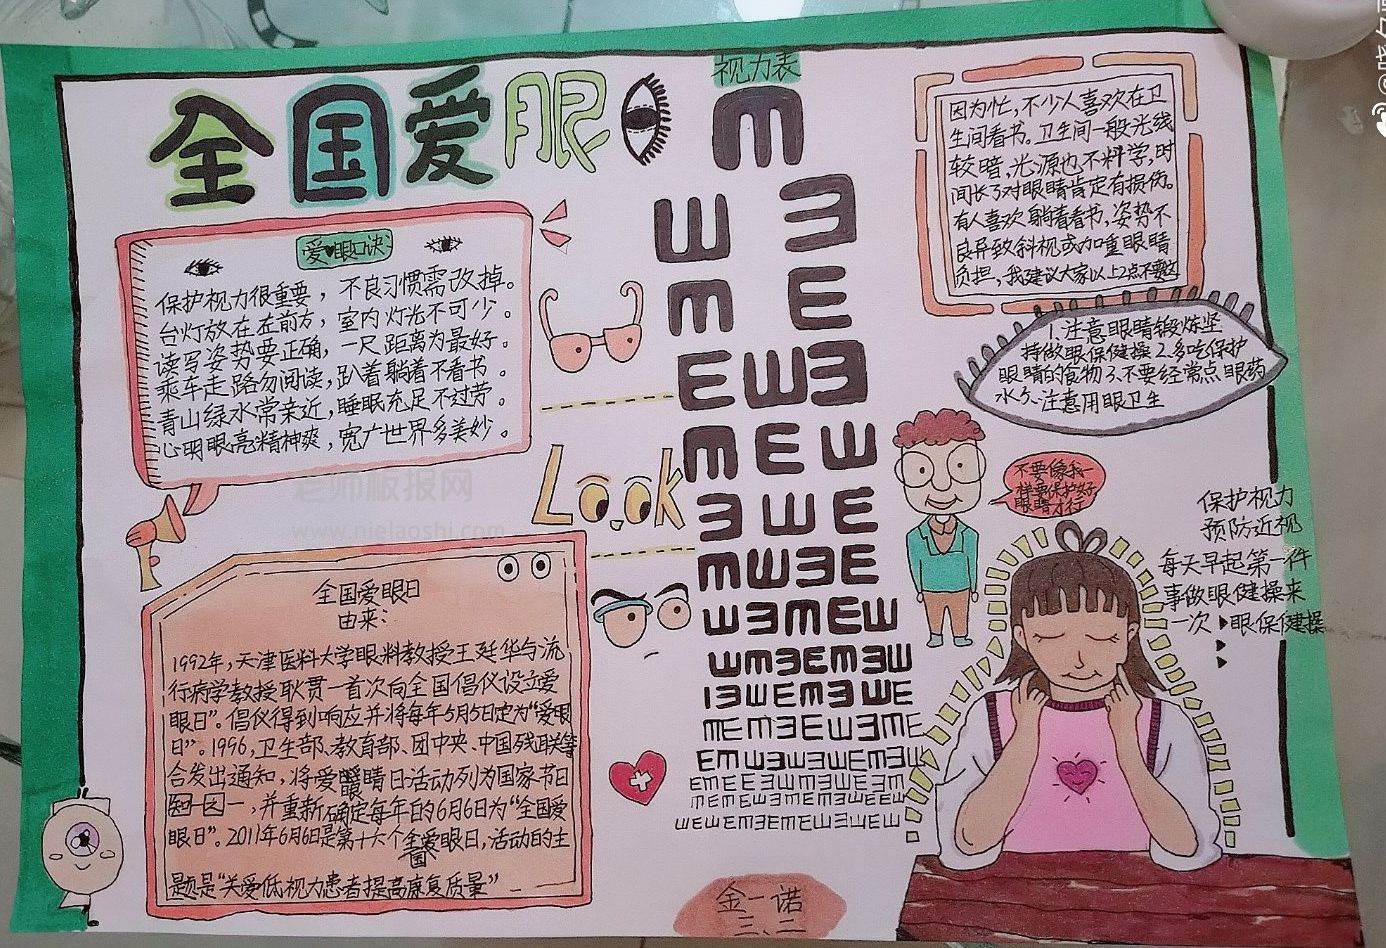 全国爱眼
视力表
爱眼口诀
保护视力很重要，不良习惯需改掉。
台灯放在左前方，室内灯光不可少。
读写姿势要正确，一尺距离为最好。
乘车走路勿阅读，趴着躺着不看书。
青山绿水常亲近，睡眠充足不过劳。
心明眼亮精神爽，宽广世界多美妙。
老师板报网
www.nielaoshi.com
Look
全国爱眼日
由来:
1992年，天津医科大学眼科教授王延华与流
行病学教授耿贯一首次向全国倡仪设立爱
眼日”。倡仪得到响应并将每年5月5日定为“爱眼
日”。1996，卫生部、教育部、团中央、中国残联等
合发出通知，将爱眼睛日活动列为国家节日
一，并重新确定每年的6月6日为“全国爱
眼日”。2011年6月6日是第十六个全国爱眼日，活动的主
题是“关爱低视力患者提高康复质量”
因为忙，不少人喜欢在卫
生间看书。卫生间一般光线
较暗，光源也不科学，时
间长了对眼睛肯定有损伤。
有人喜欢躺着看书，姿势不
良异致斜视或加重眼睛
负担，我建议大家以上2点不要这
1.注意眼睛锻炼坚
持做眼保健操2.多吃保护
眼睛的食物3、不要经常点眼药
水5、注意用眼卫生
不要像我一
样要保护好
眼睛才行
保护视力
预防近视
每天早起第一件
事做眼健操来
一次眼保健操
金一诺
三、二